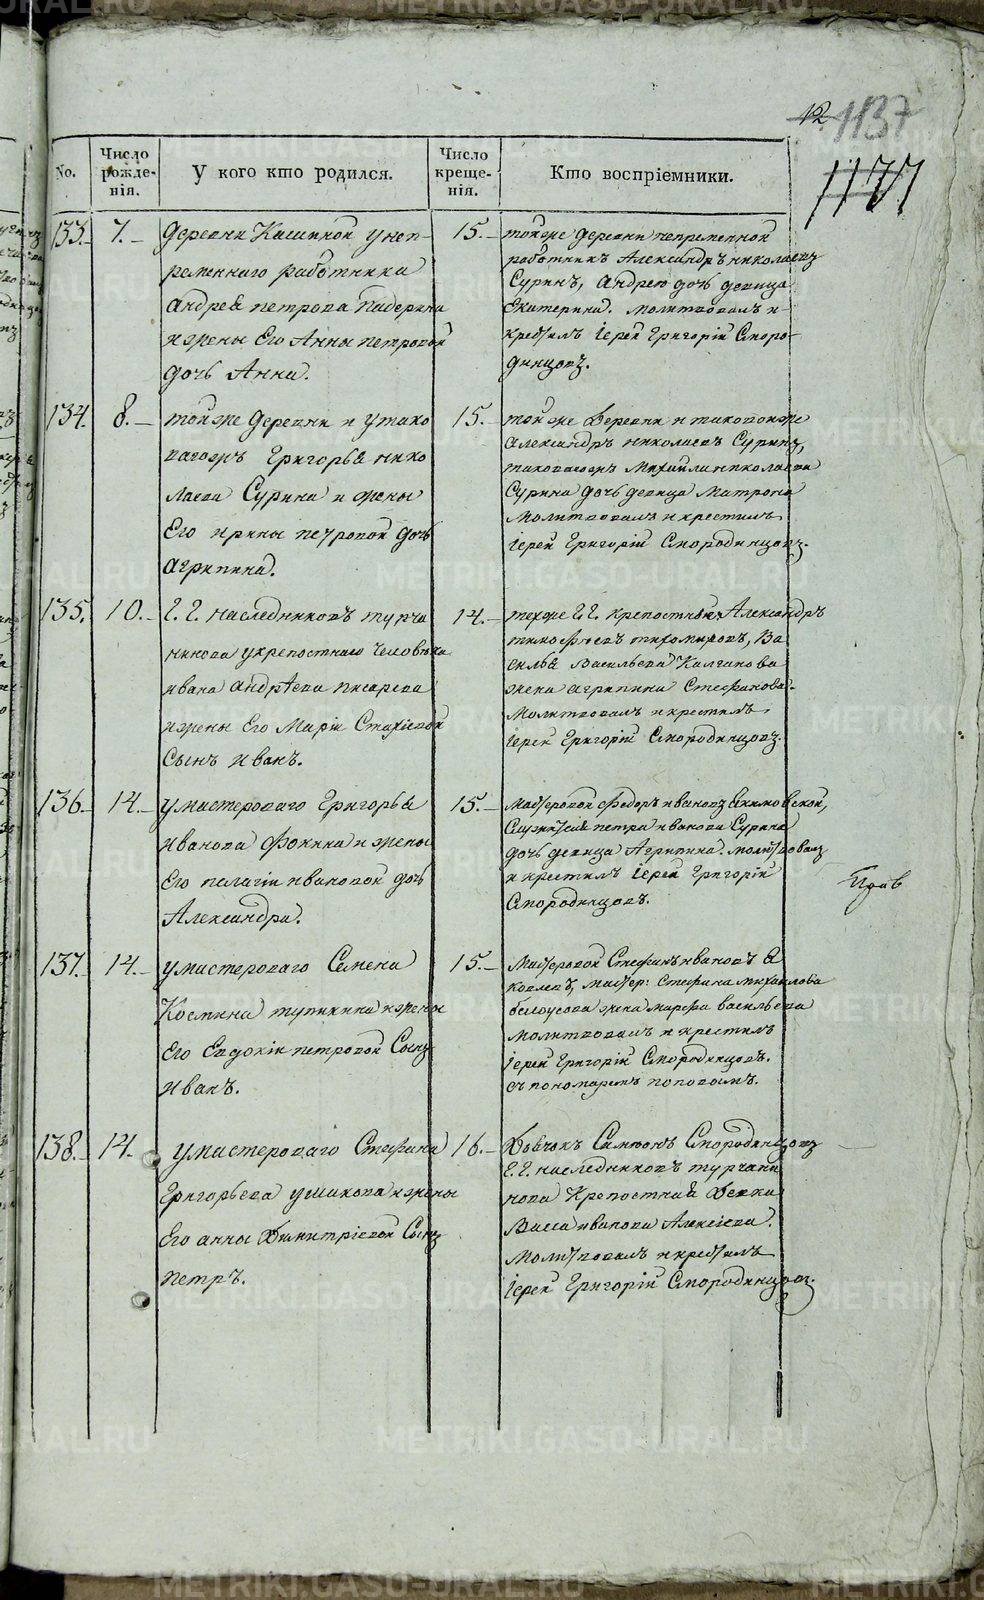 12 1137
1177
No.
Число рожде-нія.
У кого кто родился.
Число креще-нія.
Кто воспріемники.
133. 7.
деревни Кашиной у неп-
ременнаго работника
Андрея петрова Падерина
и жены Его Анны петровой
дочь Анна.
15.
тойже деревни непременной
работникъ Александръ николаевъ
Суринъ, Андрею дочь девица
Екатерина. молитвовалъ и
крестилъ іерей Григорій Сморо-
динцовъ.
134. 8.
тойже деревни и у тако
вагожъ Григорья нико
лаева Сурина и жены
Его ирины петровой дочь
агрипина.
15.
той же деревни и таковойже
Александръ николаевъ Суринъ,
таковагожъ Михайла николаева
Сурина дочь девица Матрона
молитвовалъ и крестилъ
іерей Григорій Смородинцовъ.
135. 10.
Г. Г. наследниковъ турча
нинова у крепостнаго человека
ивана андреева писарева
и жены Его Маріи
Сынъ иванъ.
14.
техже Г. Г. крепостной Александръ
тимофеевъ тихомировъ, Ва
силья Васильева Калганова
жена агрипина Стефанова.
молитвовалъ и крестилъ
іерей Григорій Смородинцовъ.
136. 14.
у мастероваго Григорья
иванова фокина и жены
Его пелагіи ивановой дочь
Александра.
15.
мастеровой федоръ ивановъ
петра иванова Сурина
дочь девица Агрипина. молитвовалъ
и крестилъ іерей Григорій
Смородинцовъ.
137. 14.
у мастероваго Семена
Космина тупикина и жены
Его Евдокіи петровой Сынъ
иванъ.
15.
Мастеровой Стефанъ ивановъ
мастер: Стефана михайлова
белоусова жена марфа васильева
молитвовалъ и крестилъ
іерей Григорій Смородинцовъ.
съ пономаремъ поповымъ.
138. 14.
у мастероваго Стефана
Григорьева ушакова и жены
Его анны Димитріевой Сынъ
петръ.
16.
Симеонъ Смородинцовъ
Г. Г. наследниковъ турчани
нова Крепостная девка
Васса иванова Алексіева.
молитвовалъ и крестилъ
іерей Григорій Смородинцовъ.
METRIKI.GASO-URAL.RU